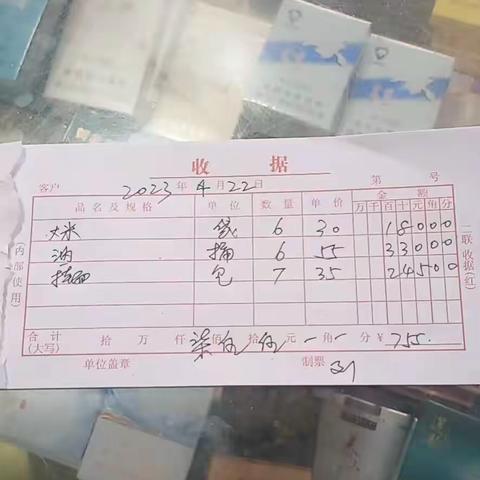 收 据
客户 2023年4月22日 第 号
品名及规格 单位 数量 单价 金额
万千百十元角分
大米 袋 6 30 18000
油 桶 6 55 33000
挂面 包 7 35 24500
合计(大写) 拾 万 仟 柒佰伍拾伍元 角 分 ¥755.
单位盖章 制票 刘
(内部使用)
二联收据(红)